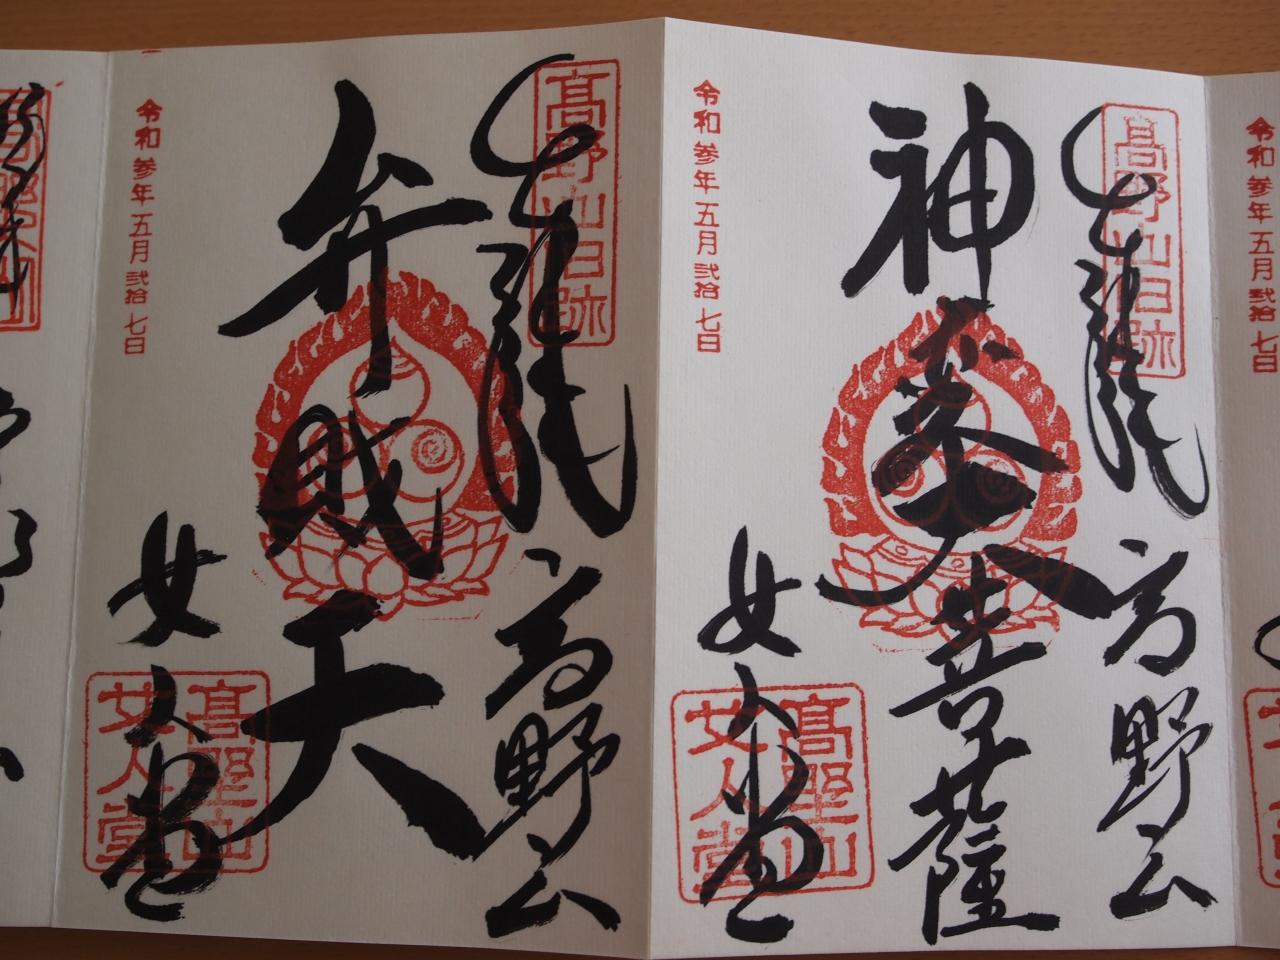 令和参年五月弐拾七日
髙野山旧跡
高野山
神変大菩薩
女人堂
髙野山
女人堂
令和参年五月弐拾七日
髙野山旧跡
高野山
弁財天
女人堂
髙野山
女人堂
令和参年五月弐拾七日